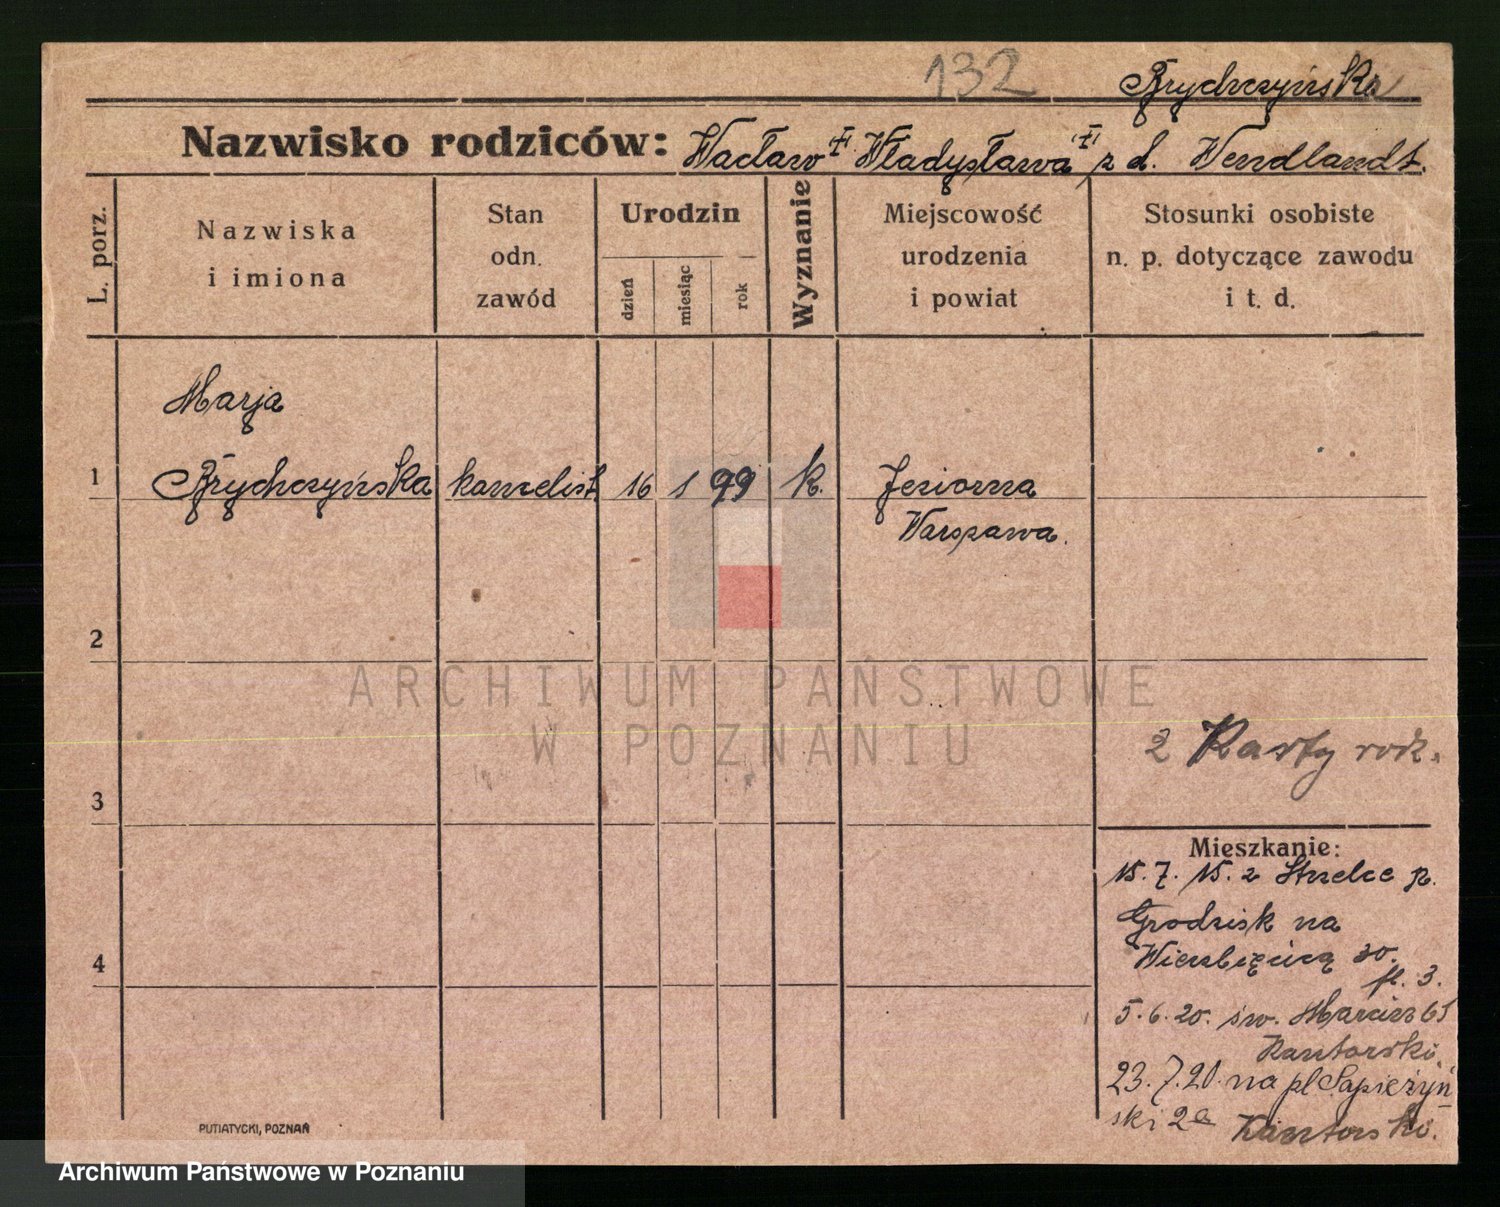 132 Brychczyńska
Nazwisko rodziców: Wacław Władysława z d. Wendlandt.
L. porz.
Nazwiska
i imiona
Stan
odn.
zawód
Urodzin
dzień
miesiąc
rok
Wyznanie
Miejscowość
urodzenia
i powiat
Stosunki osobiste
n. p. dotyczące zawodu
i t. d.
Marja
1 Brychczyńska kancelist. 16 1 99 k. Jeziorna
Warszawa.
2
ARCHIWUM PAŃSTWOWE
W POZNANIU
2 Karty rodz.
3
Mieszkanie:
15. 7. z Strzelce p.
Grodzisk na
Wierzbięcicą 30.
4
3.
5. 6. 20. św. Marcin 65
Kantorski.
23. 7. 20. na pl Sapieżyń
ski 2a Kantorski.
PUTIATYCKI, POZNAŃ
Archiwum Państwowe w Poznaniu